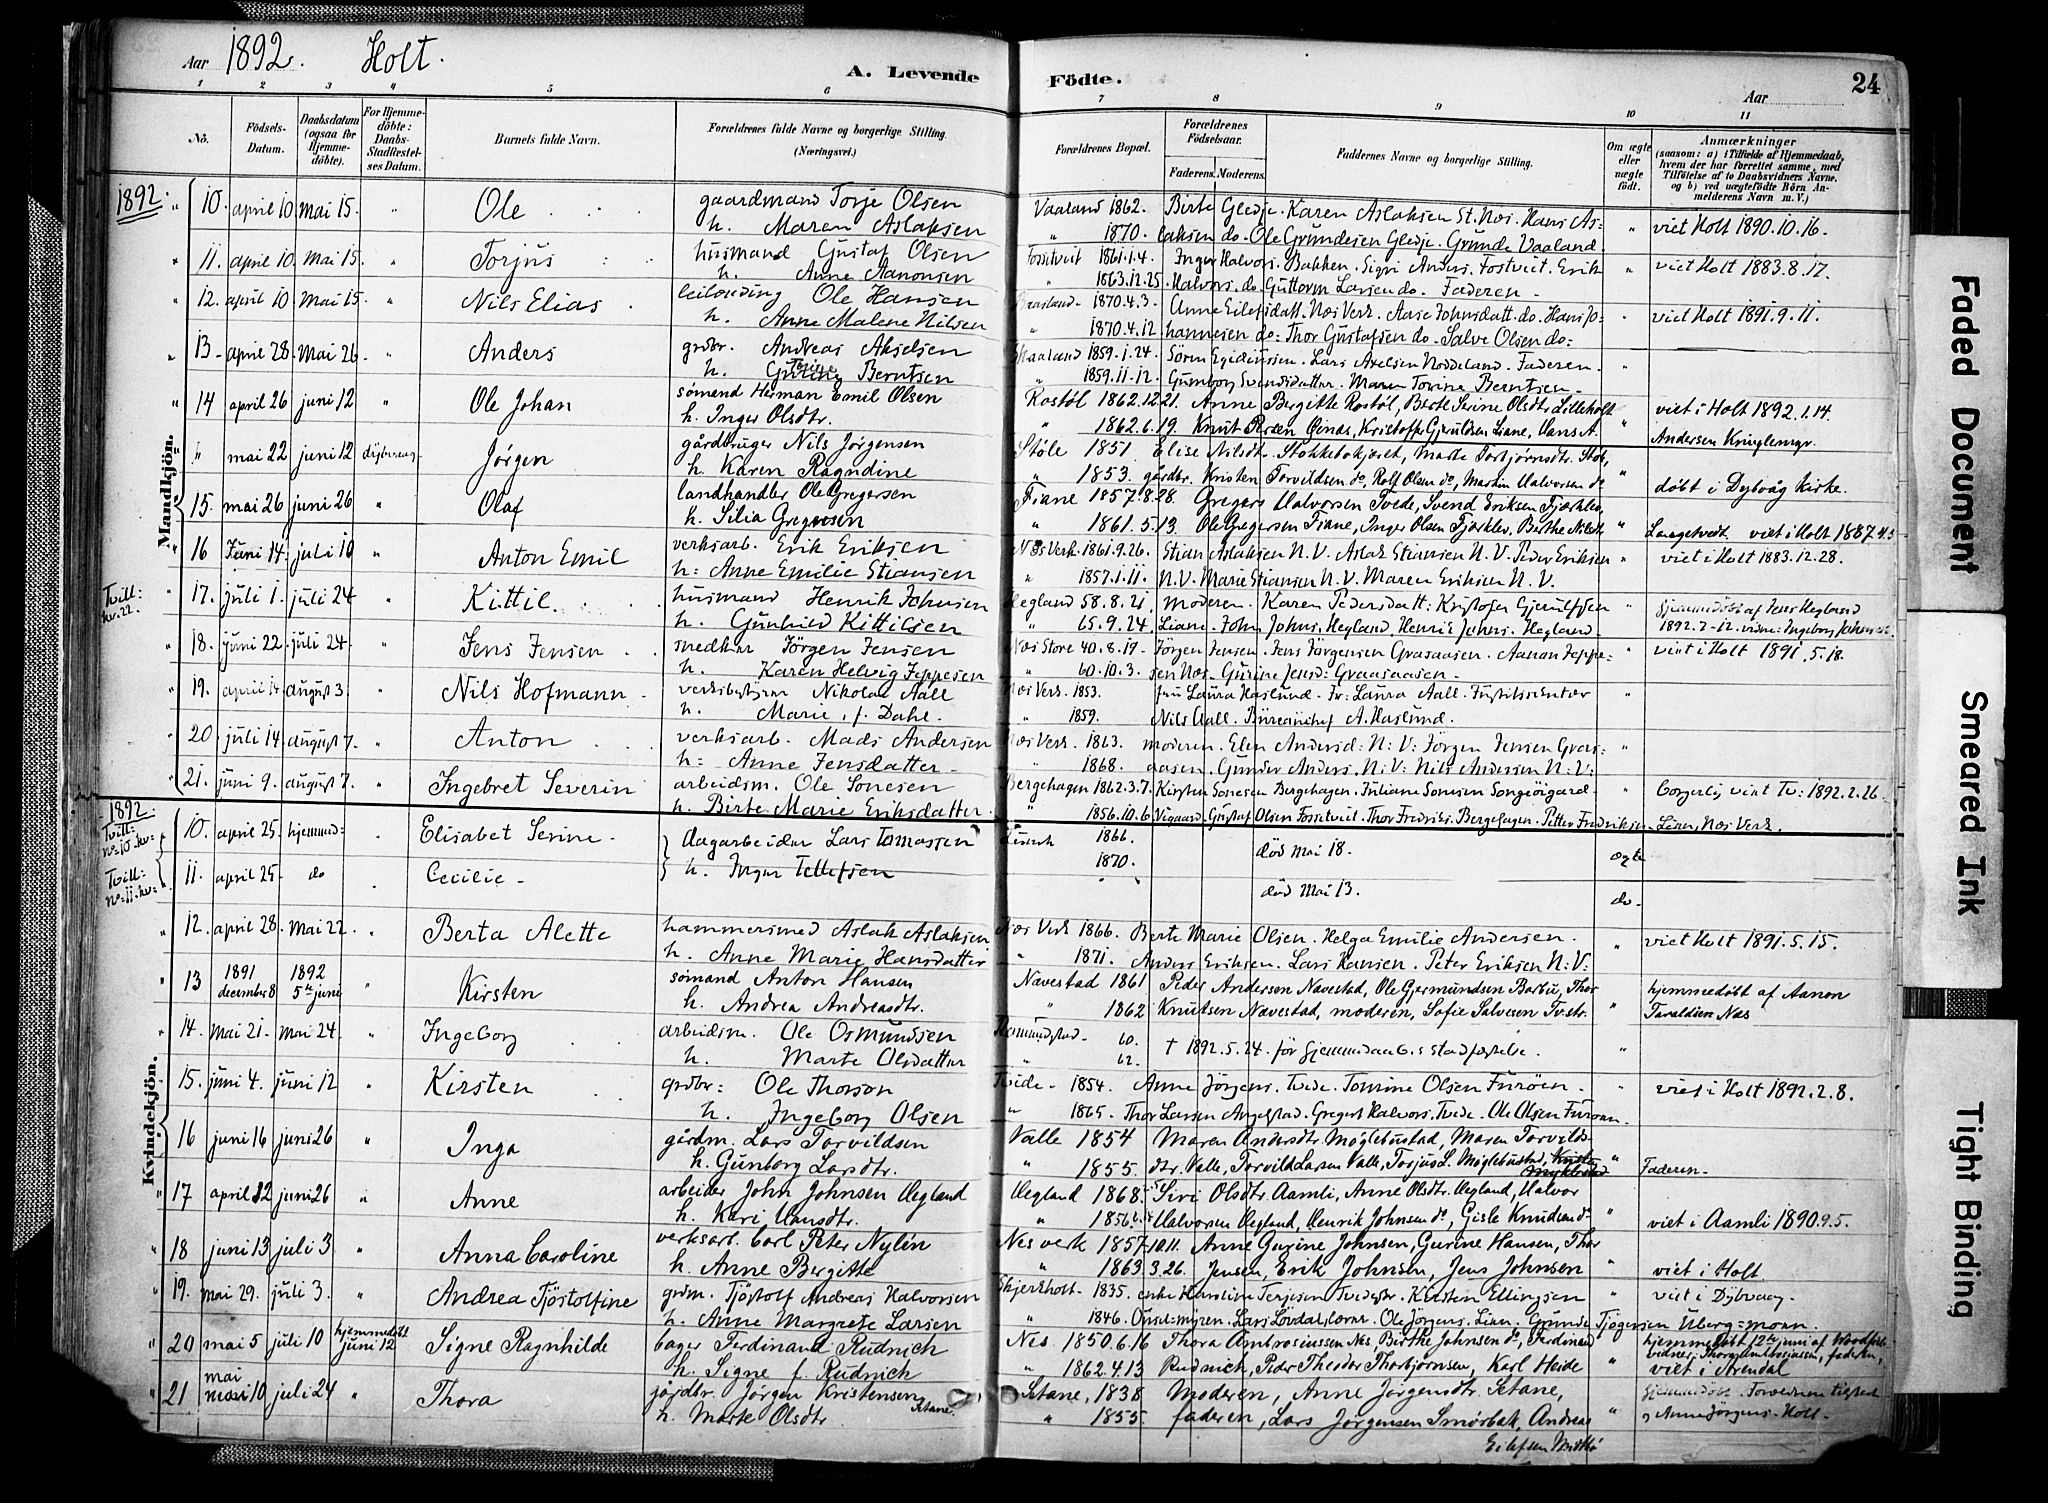 Aar 1892. Holt.
A. Levende Födte.
24
Aar
1 2 3 4 5 6 7 8 9 10 11
No.
Födsels-Datum.
Daabsdatum (ogsaa for Hjemme-döbte).
For Hjemme-döbte: Daabs-Stadfæstelses Datum.
Barnets fulde Navn.
Forældrenes fulde Navne og borgerlige Stilling. (Næringsvei.)
Forældrenes Bopæl.
Forældrenes Födselsaar.
Faderens. Moderens.
Faddernes Navne og borgerlige Stilling.
Om ægte eller uægte födt.
Anmærkninger (saasom: a) i Tilfælde af Hjemmedaab, hvem der har forrettet samme, med Tilföielse af to Daabsvidners Navne, og b) ved uægtefödte Börn Anmelderens Navn m. V.)
1892.
Mandkjön.
10. april 10 mai 15. " Ole gaardmand Torje Olsen Vaaland 1862. Birte Gledje. Karen Aslaksen St. Næs. Hans As= " viet Holt 1890.10.16.
h. Maren Aslaksen " 1870. laksen do. Ole Grundesen Gledje. Grunde Vaaland.
11. april 10. Mai 15. " Torjus husmand Gustaf Olsen Fosstveit 1861.1.4. Inger Halvors. Bakken. Sigri Anders. Fostveit. Erik " viet Holt 1883.8.17.
h. Anne Aanonsen " 1863.12.25. Halvors. do. Guttorm Larsen do. Faderen.
12. april 10 Mai 15. " Nils Elias leilænding Ole Hansen 1870.4.3. Anne Eilefsdatt. Næs Verk. Aase Johnsdatt. do. Hans Jo= " viet Holt 1891.9.11.
h. Anne Malene Nilsen " 1870.4.12 hannesen do: Thor Gustafsen do. Salve Olsen do:
13. april 28. Mai 26. " Anders grdbr. Andreas Akselsen 1859.1.24. Sören Egidiussen. Lars Axelsen Noddeland. Faderen. "
h. Berntsen " 1859.11.12. Gunborg Svendsdatter. Maren Torine Berntsen.
14 april 26 juni 12 " Ole Johan sömend Herman Emil Olsen Rostöl 1862.12.21. Anne Bergitte Rostöl, Berte Serine Olsdtr. Lilleholt " viet i Holt 1892.1.14.
h. Inger Olsdtr. " 1862.6.19. Knut Persen Kristoffer Gjeruldsen Liane, Hans A. Andersen
" mai 22 juni 12 Jörgen gårdbruger Nils Jörgensen Støle 1851 Elise Nilsdt. Marte Torbjörnsdtr. Støle,
h. Karen Ragndine " 1853. gårdbr. Kristen Torvildsen do, Rolf Olsen do, Martin Halvorsen do " döbt i Dybvåg Kirke.
15. mai 26 juni 26 " Olaf landhandler Ole Gregersen Fiane 1857.8.28. Gregers Halvorsen Tvede, Svend Eriksen Fjærkleiv,
h. Silia Gregersen " 1861.5.13. Ole Gregersen Fiane, Inger Olsen Fjærkleiv, Berthe Nilsdt. " viet i Holt 1887.4.3
16 Juni 14. juli 10 " Anton Emil verksarb. Erik Eriksen Næs Verk. 1861.9.26. Stian Aslaksen N. V. Aslak Stiansen N. V. Peder Eriksen " viet i Holt 1883.12.28.
h: Anne Emilie Stiansen " 1857.1.11. N. V. Marie Stiansen N. V. Maren Eriksen N. V.
Tvill: kv. 22.
17. juli 1. juli 24 " Kittil. husmand Henrik Johnsen Hegland 58.8.21. Moderen. Karen Pedersdatt: Kristofer Gjerulfsen " hjemmedöbt af Jens Hegland
h. Gunhild Kittilsen " 65.9.24. Liane. John Johns. Hegland. Henrik Johns. Hegland. 1892.7-12. vidne: Ingeborg
18. juni 22. juli 24. " Jens Jensen snedker Jörgen Jensen Næs Store 40.8.19. Jörgen Jensen. Jens Jörgensen Graasaasen. Aanon Jeppe= " viet i Holt 1891.5.18.
h. Karen Helvig Jeppesen " 60.10.3. sen Næs. Gurine Jensd: Graasaasen.
19. april 14. august 3. " Nils Hofmann Nikolai Aall Næs Verk. 1853. fru Laura Haslund. Fr: Laura Aall. "
h. Marie, f. Dahl. " 1859. Nils Aall. Büreauchef A. Haslund.
20 juli 14 august 7. " Anton verksarb. Mads Andersen Næs Verk. 1863. moderen. Elen Andersd: N: V: Jörgen Jensen Gras= "
h: Anne Jensdatter " 1868. aasen. Gunder Anders. N: V: Nils Andersen N: V:
21. juni 9. august 7. " Ingebret Severin arbeidsm. Ole Sonesen Bergehagen 1862.3.7. Kirsten Sonesen Bergehagen. Juliane Sonesen " borgerlig viet Tv: 1892.2.26.
h. Birte Marie Eriksdatter. " 1856.10.6. Gustaf Olsen Fosstveit. Thor Fredriks. Bergehagen. Petter Fredriksen. Lien, Næs Verk.
1892.
Kvindekjön.
Tvill: no=10.kv:=
10. april 25. hjemmed: Elisabet Serine. Dagarbeider Lars Tomassen 1866. död Mai 18. ægte
Tvill: no=11.kv:=
11. april 25. do Cecilie h. Inger Tellefsen 1870. död Mai 13. do.
12. april 28. Mai 22. " Berta Alette hammersmed Aslak Aslaksen Næs Verk 1866. Berte Marie Olsen. Helga Emilie Andersen. " viet Holt 1891.5.15.
h. Anne Marie Hansdatter " 1871. Anders Eriksen. Lars Hansen. Peter Eriksen N: V:
13 1891 december 8 1892 5te juni " Kirsten sömand Anton Hansen Nævestad 1861 Peder Andersen Nævestad, Ole Gjermundsen Barbu, Thor hjemmedöbt af Aanon
h. Andrea Andreasdtr. " 1862 Knutsen Nævestad, moderen, Sofie Salvesen Tv.str. " Taraldsen Næs
14. Mai 21. Mai 24. " Ingeborg arbeidsm. Ole Osmundsen 60.
h. Marte Olsdatter " 62. † 1892.5.24. för hjemmedaabens stadfæstelse. "
15. juni 4. juni 12 " Kirsten grdbr: Ole Thorson Tvede. 1854. Anne Jörgens. Tvede. Tomine Olsen Furöen. " viet i Holt 1892.2.8.
h. Ingeborg Olsen " 1865. Thor Larsen Angelstad. Gregert Halvors. Tvede. Ole Olsen Furöen.
16 juni 16 juni 26 " Inga gårdm. Lars Torvildsen Valle 1854 Maren Andersdtr. Møglebustad, Maren Torvilds-
h. Gunborg Larsdtr. " 1855. dtr. Valle, Torvild Larsen Valle, Torjus L. Møglebustad, " Faderen.
17 april 12 juni 26 " Anne arbeider John Johnsen Hegland Hegland 1868. Siri Olsdtr. Aamli, Anne Olsdtr. Hegland, Halvor
h. Kari Hansdtr. " 1856. Halvorsen Hegland, Henrik Johnsen do, Gisle Knudsen do " viet i Aamli 1890.9.5.
18 juni 13 juli 3. " Anna Caroline verksarb. Carl Peter Nylén Nes verk 1857.10.11. Anne Gurine Johnsen, Gurine Hansen, Thor
h. Anne Bergitte " 1863.3.26. Jensen, Erik Johnsen, Jens Johnsen " viet i Holt.
19. mai 29. juli 3. " Andrea Tjöstolfine grdm. Tjöstolf Andreas Halvorsen Skjerkholt. 1835. enke Karoline Terjesen Tvedestr. Kirsten Ellingsen " viet i Dybvaag.
h. Anne Margrete Larsen " 1846. Ole Jörgens. Lien. Gunde Tjögersen
20 mai 5 juli 10 hjemmedöbt juni 12 Signe Ragnhilde bager Ferdinand Rudnich Nes 1850.6.16 Thora Ambrosiussen Nes, Birthe Johnsen do, Ferdinand hjemmedöbt 12te juni af
h. Signe f. Rudnich " 1862.4.13 Rudnich, Peder Theodor Thorbjörnsen, Karl Heide " viet i Arendal
21 mai 10 juli 24 " Thora gårdbr. Jörgen Kristensen Setane. Setane, 1838 Moderen, Anne Jörgensdtr. Setane, hjemmedöbt. Forældrene tilsted
h. Marte Olsdtr " 1855. faderen, Lars Jörgensen Smörbek, Andreas " og Anne Jörgens. Holt.
Eilefsen
Faded Document
Smeared Ink
Tight Binding